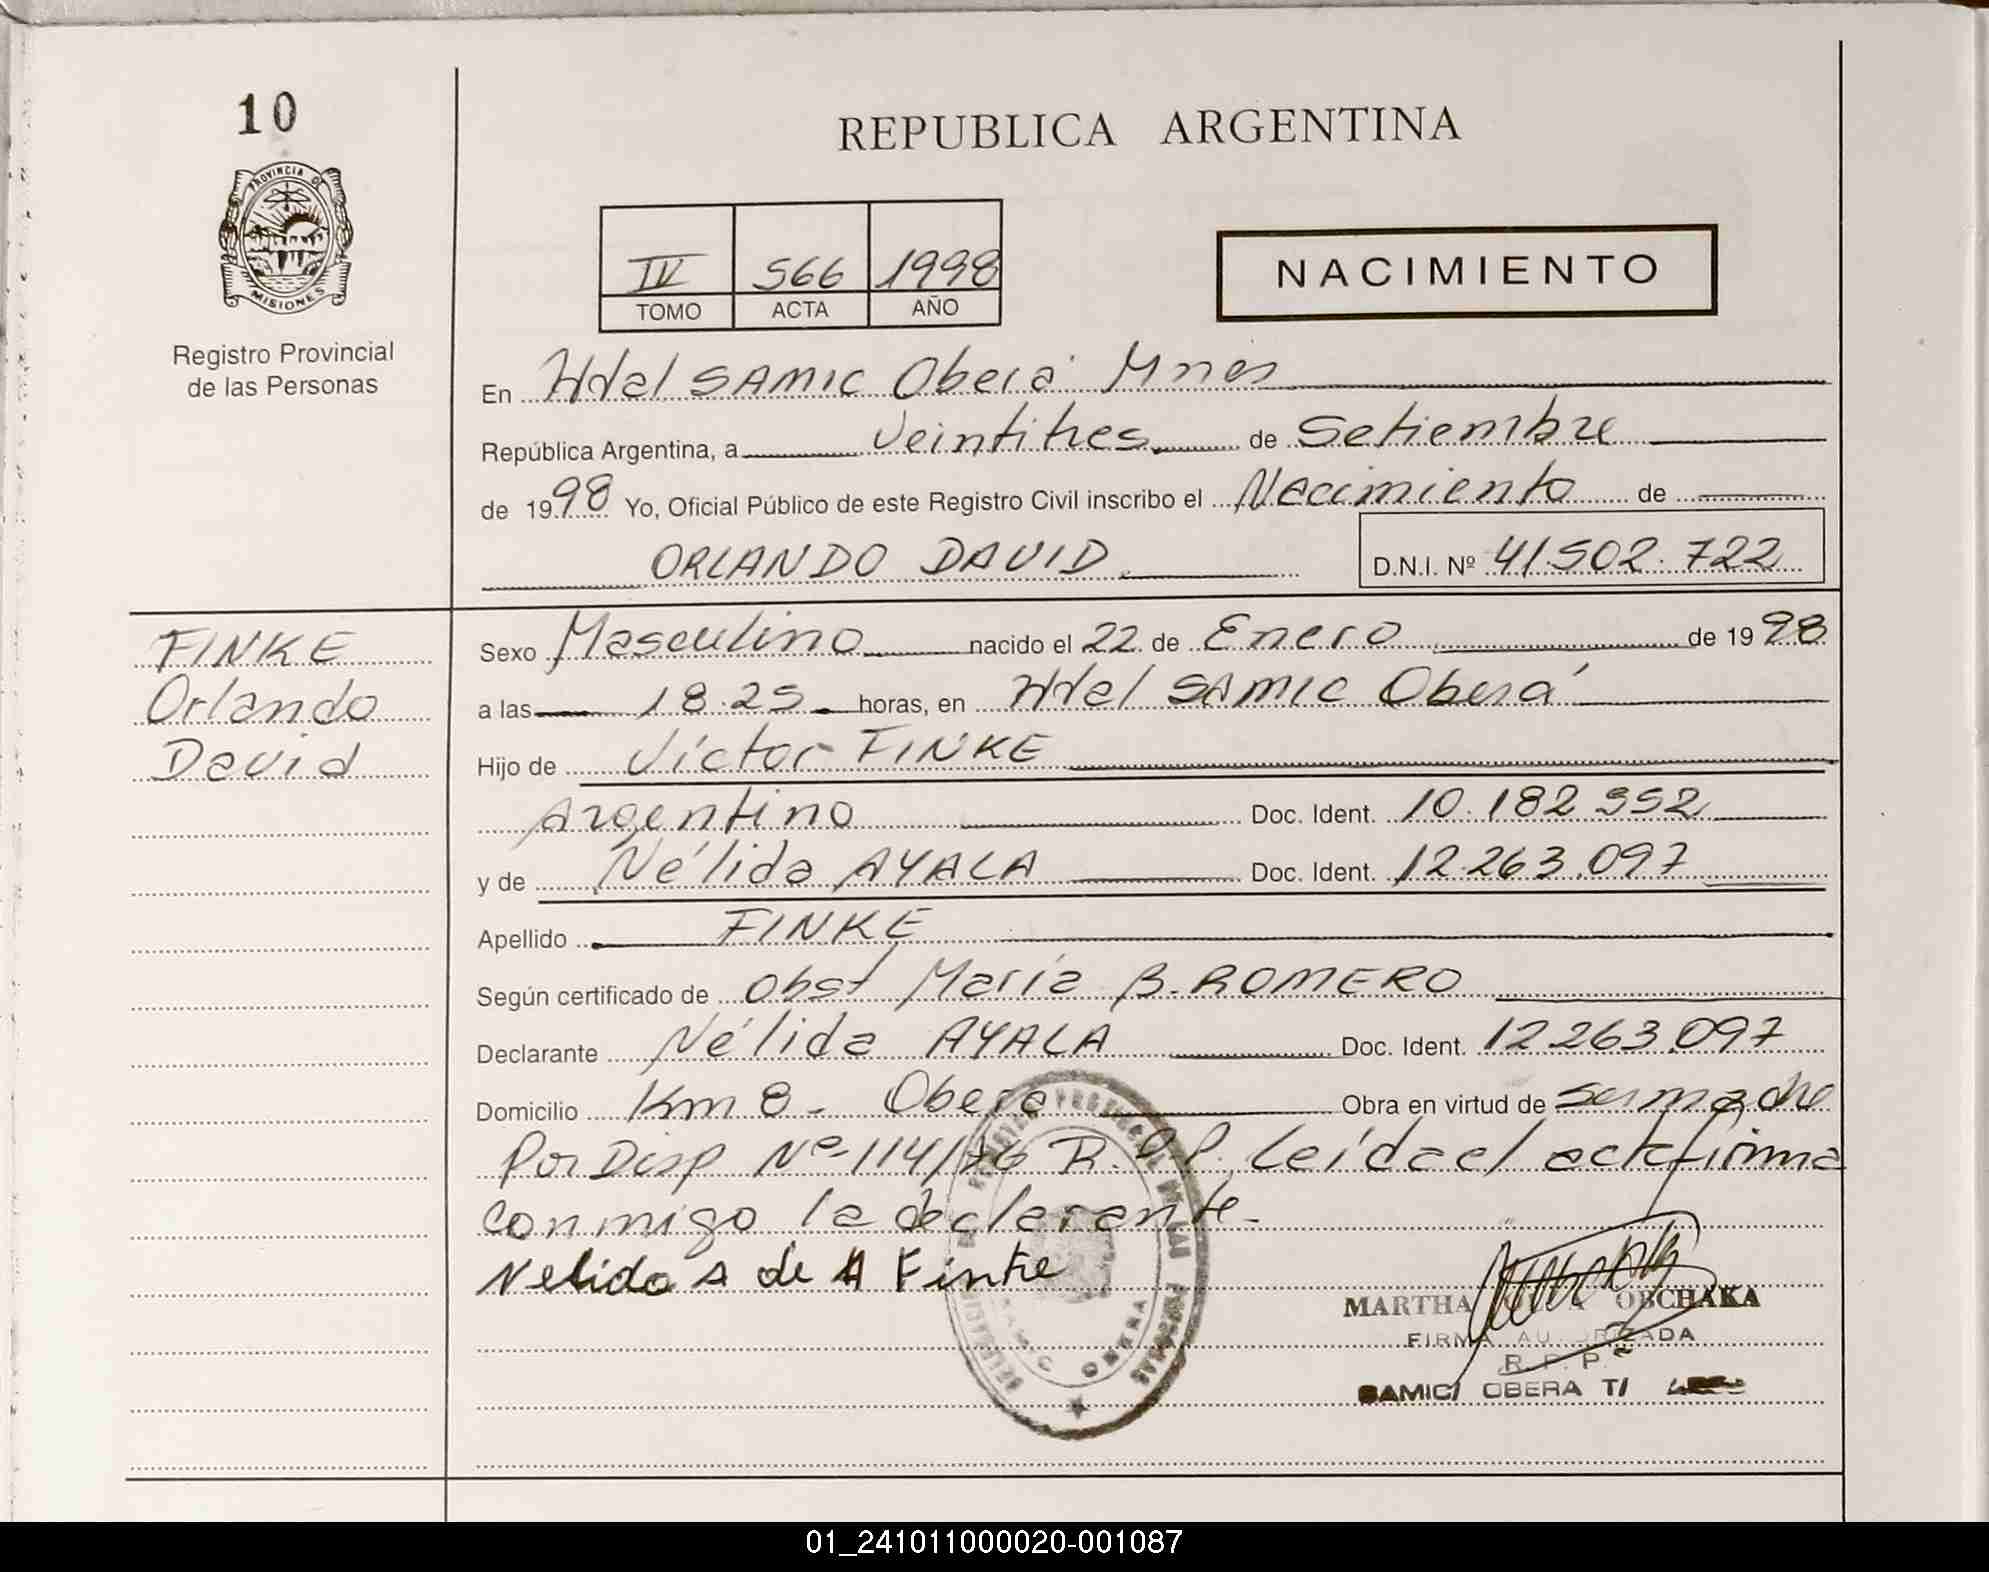 10
REPUBLICA ARGENTINA
PROVINCIA DE
MISIONES
Registro Provincial
de las Personas
IV 566 1998
TOMO ACTA AÑO
NACIMIENTO
En Htal SAMIC Oberá Mnes
República Argentina, a Veintitres de Setiembre
de 1998 Yo, Oficial Público de este Registro Civil inscribo el Nacimiento de
ORLANDO DAVID
D.N.I. Nº 41.502.722
FINKE
Orlando
David
Sexo Masculino nacido el 22 de Enero de 1998
a las 18.25 horas, en Htal SAMIC Oberá
Hijo de Víctor FINKE
Argentino Doc. Ident. 10.182.352
y de Nélida AYALA Doc. Ident. 12.263.097
Apellido FINKE
Según certificado de Obst María B. ROMERO
Declarante Nélida AYALA Doc. Ident. 12.263.097
Domicilio Km 8 - Oberá Obra en virtud de su madre
Por Disp Nº 114/76 R.P.P. Leída el acta firma
conmigo la declarante.
Nelida A de Finke
MARTHA OBCHAKA
FIRMA AUTORIZADA
R. P. P.
SAMIC/ OBERA T/
OBERA
01_241011000020-001087